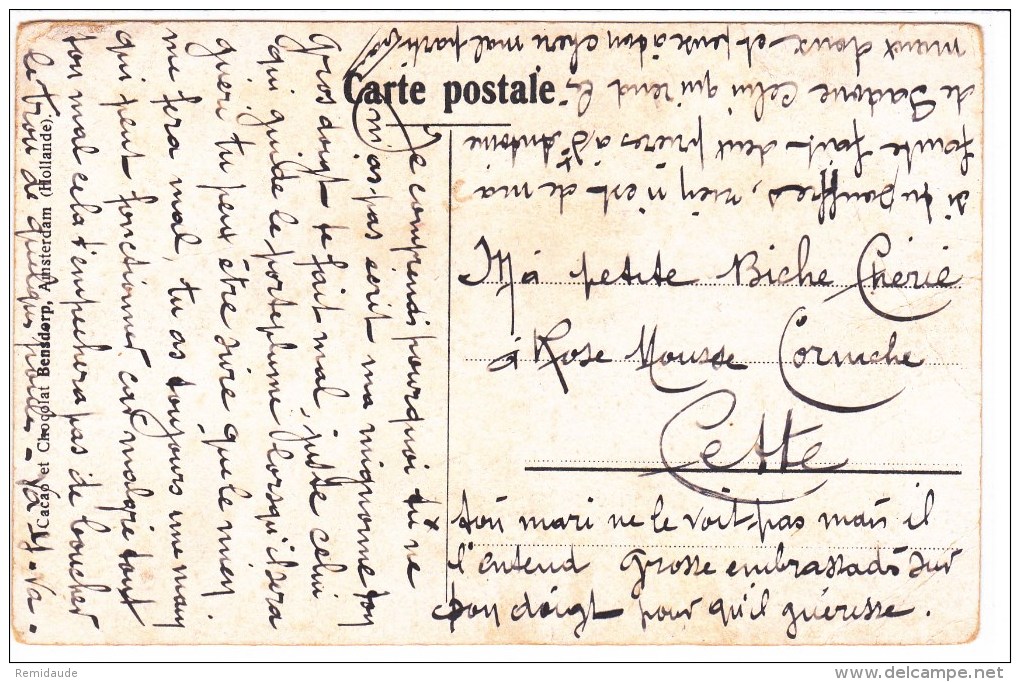 Carte postale
Je comprends pourquoi tu ne
m'as pas écrit ma mignonne ton
gros doigt te fait mal, juste celui
qui guide le porteplume lorsqu'il sera
guéri tu peux être sûre que le mien
me fera mal, tu as toujours une main
qui peut fonctionner car malgré tout
ton mal cela t'empêchera pas de boucher
le trou de quelque
Va - Va -
Cacao et Chocolat Bensdorp, Amsterdam (Hollande).
si tu souffres, rien n'est de ma
faute fait deux prières à St Antoine
de Padoue Celui qui rend le
mieux doux et pense à ton chéri mal parti
Ma petite Biche Chérie
à Rose Mousse Corniche
Cette
ton mari ne le voit pas mais il
l'entend Grosse embrassade sur
son doigt pour qu'il guérisse.
Remidaude
www.delcampe.net